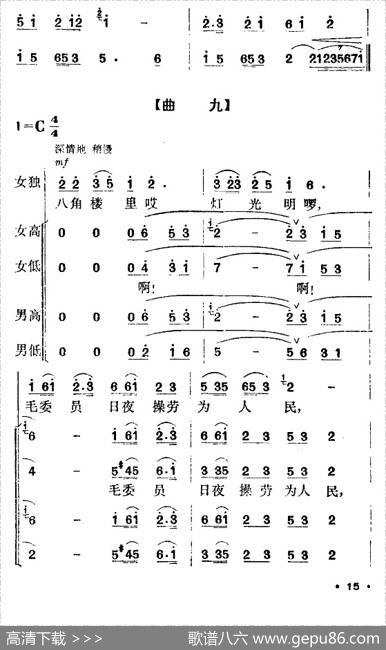 5 1 2 1 2 1 - 2. 3 2 1 6 1 2
1 5 6 5 3 5. 6 1 5 6 5 3 2 21235671
【曲 九】
1=C 4/4
深情地 稍慢
mf
女独 2 2 3 5 1 2. 3 23 2 5 1 6.
八角楼里哎 灯光明啰,
女高 0 0 06 53 2 - 23 15
女低 0 0 04 31 7 - 71 53
啊! 啊!
男高 0 0 06 53 2 - 23 15
男低 0 0 02 16 5 - 56 31
1 61 2.3 6 61 2 3 5 35 65 3 2 -
毛委员日夜操劳为人民,
6 - 1 61 2.3 6 61 2 3 5 35 2
4 - 5 #45 6.1 3 35 2 3 5 35 2
毛委员 日夜操劳为人民,
6 - 1 61 2.3 6 61 2 3 5 35 2
2 - 5 #45 6.1 3 35 2 3 5 35 2
• 15 •
高清下载 >>> 歌谱八六 www.gepu86.com